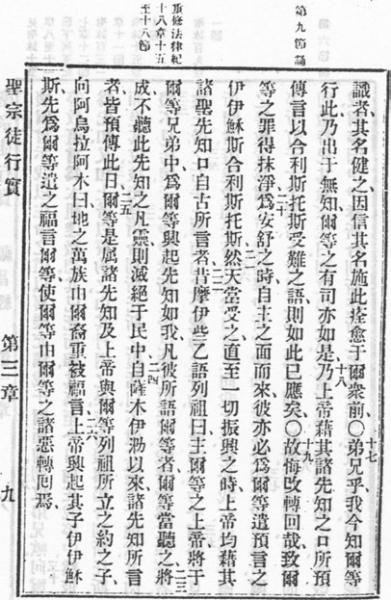 第九節誦
重修法律紀
十八章十五
至十八節
識者其名健之因信其名施此痊愈于爾衆前〇弟兄乎十七、我今知爾等
行此乃出于無知爾等之有司亦如是十八、乃上帝藉其諸先知之口所預
傳言以合利斯托斯受難之語則如此已應矣〇十九、故悔改轉回哉致爾
等之罪得抹淨二十、爲安舒之時自主之面而來彼亦必爲爾等遣預言之
伊伊穌斯合利斯托斯二一、然天當受之直至一切振興之時上帝均藉其
諸聖先知口自古所言者二二、昔摩伊些乙語列祖曰主爾等之上帝將于
爾等兄弟中爲爾等興起先知如我凡彼所語爾等者爾等當聽之二三、將
成不聽此先知之凡靈則滅絕于民中二四、自薩木伊泐以來諸先知所言
者皆預傳此日二五、爾等是属諸先知及上帝與爾等列祖所立之約之子、
向阿烏拉阿木曰地之萬族由爾裔重被福言二六、上帝興起其子伊伊穌
斯先爲爾等遣之福言爾等使爾等由爾等之諸惡轉回焉、
聖宗徒行實 第三章 九